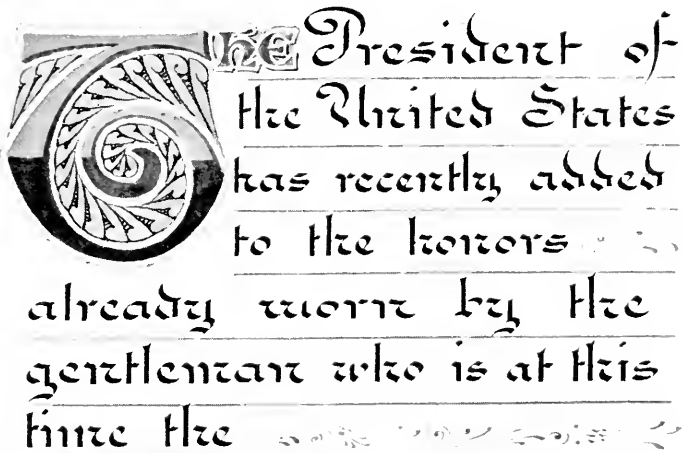 THE President of
the United States
has recently added
to the honors
already worn by the
gentleman who is at this
time the